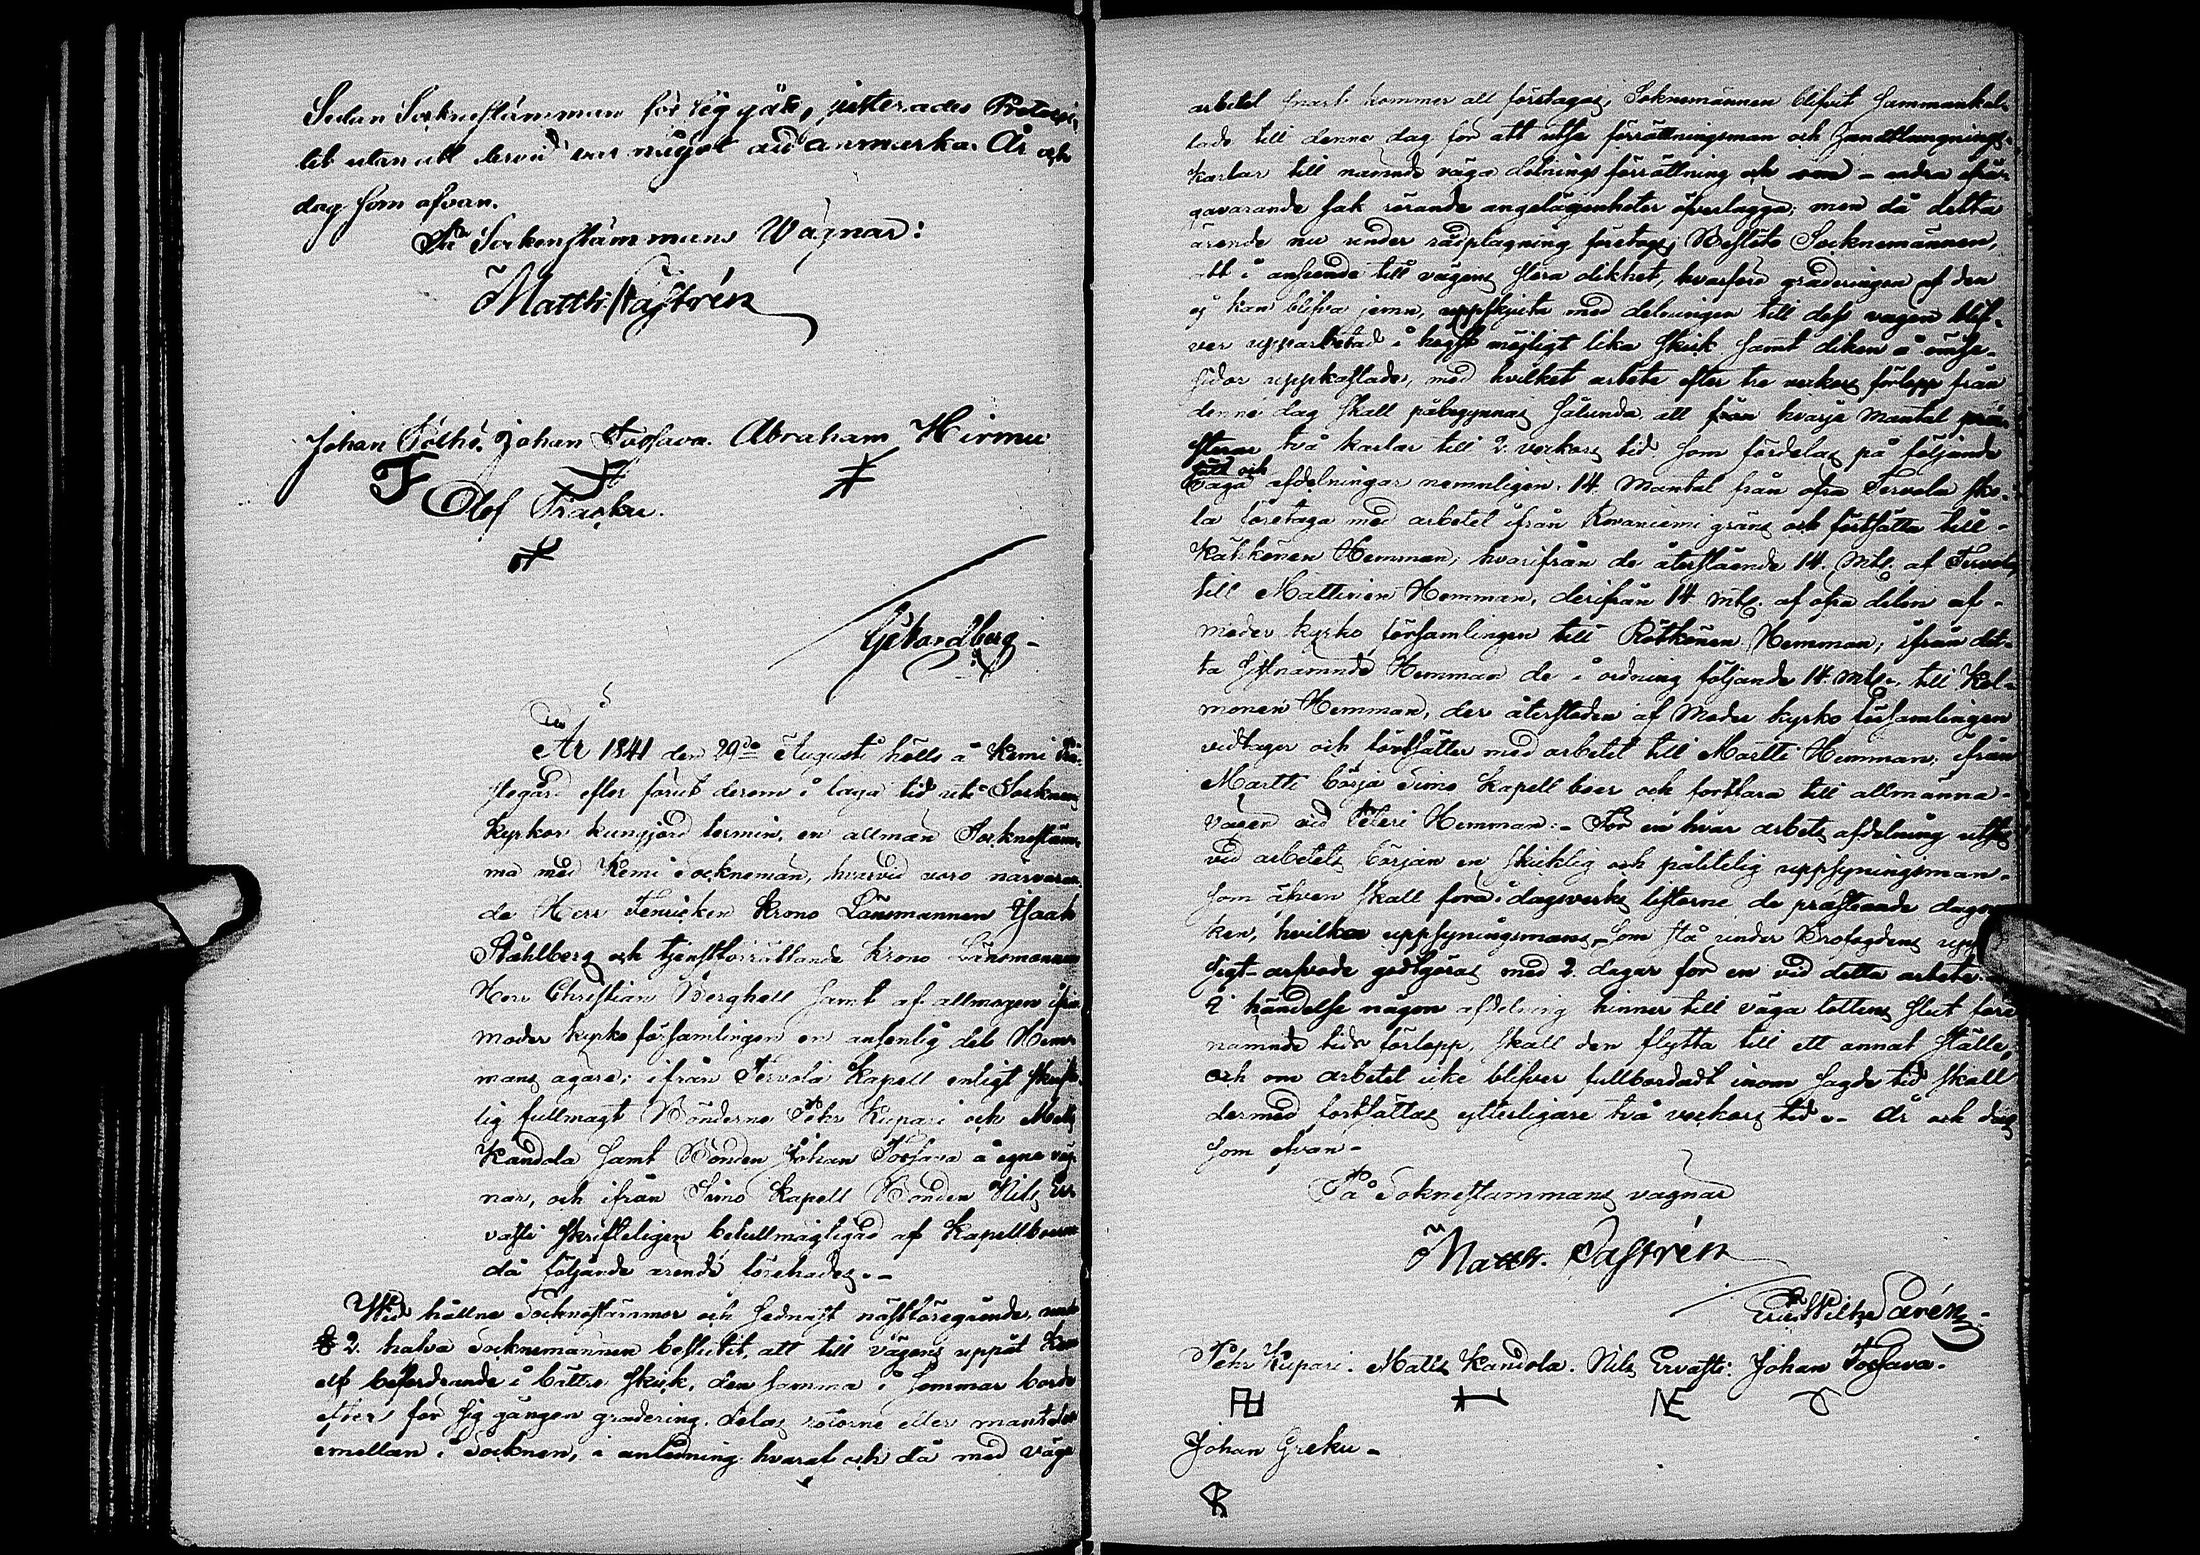 Sedan Socknestämman för sig gått, justerades Protocol-
let utan att dervid var något att anmärka. År och
dag som ofvan.
På Sockenstämmans Wägnar:
Matth: Castrén
Johan Johan Torfava. Abraham Hirmu
Olof
År 1841 den 29de Augusti hölls å Kemi Prä-
stegård efter förut derom i laga tid uti Socknens
kyrkor kungjord termin, en allmän Socknestäm-
ma med Kemi Socknemän, hvarvid voro närvaran-
de Herr Krono Länsmannen Isaak
Ståhlberg och tjenstförrättande Krono Länsmannen
Herr Christian Berghell samt af allmogen ifrån
moder kyrko församlingen en ansenlig del Hem-
mans ägare; ifrån Tervola Kapell enligt skrift-
lig fullmagt Bönderne Pehr Kupari och Matts
Kandola samt Bonden Johan Torfava å egna väg-
nar, och ifrån Simo Kapell Bonden Nils Er-
vasti skrifteligen befullmägtigad af Kapellboerne
då följande ärende förehades.-
Wid hållne Socknestämmor och sednast nästföregående,
§ 2. hafva Socknemännen beslutit, att till vägens uppåt Kemi
elf befordrande i bättre skick, den samma i sommar borde
efter för sig gången gradering, delas rotorne eller mantalen
emellan i Socknen, i anledning hvaraf och då med väga
arbetet snart kommer att företagas, Soknemännen blifvit sammankal-
lade till denne dag för att utse förrättningsman och handtlangnings-
karlar till nämnde väga delnings förrättning och om - andra
gavarande sak rörande angelägenheter öfverlägga; men då detta
ärende nu under rådplägning företogs, Beslöto Socknemännen,
att i anseende till vägens stora olikhet, hvarföre graderingen af den
ej kan blifva jemn, uppskjuta med delningen till dess vägen blif-
ver upparbetad i högst möjligt lika skick samt diken å ömse-
sidor uppkastade, med hvilket arbete efter tre veckors förlopp från
denne dag skall påbegynnas sålunda att från hvarje Mantal præ-
steras två karlar till 2. veckors tid som fördelas på följande
och
väga afdelningar nemnligen. 14. Mantal från öfra Tervola sko-
la företaga med arbetet ifrån Rovaniemi gräns och fortsätta till-
Kähkönen Hemman, hvarifrån de återstående 14. Mtl. af Tervola
till Mattinen Hemman, derifrån 14 mtl. af öfra delen af-
moder kyrko församlingen till Rötkönen Hemman; ifrån det-
ta sistnämnde Hemman de i ordning följande 14. mtl. till Kol-
monen Hemman, der återstoden af Moder kyrko församlingen
vidtager och fortsätter med arbetet till Martti Hemman; ifrån
Martti börja Simo Kapell boer och fortfara till allmänna-
vägen vid Peteri Hemman:- För en hvar arbets afdelning utses
vid arbetets början en skicklig och pålitelig uppsyningsman-
som äfven skall föra i dagsverks listorne de præsterade dagsver-
ken, hvilka uppsyningsmans- som stå under Brofogdens upp
sigt- arfvode godtgöras med 2. dagar för en vid detta arbete.-
I händelse någon afdelning hinner till väga lottens slut före
nämnde tids förlopp, skall den flytta till ett annat ställe,
och om arbetet icke blifver fullbordadt inom sagde tid skall
dermed fortsättas ytterligare två veckors tid.- År och dag
som ofvan-
På Soknestämmans vägnar
Matth. Castrén
Pehr Kupari. Matts Kandola. Nils Ervasti. Johan Torfava.
Johan Greku-